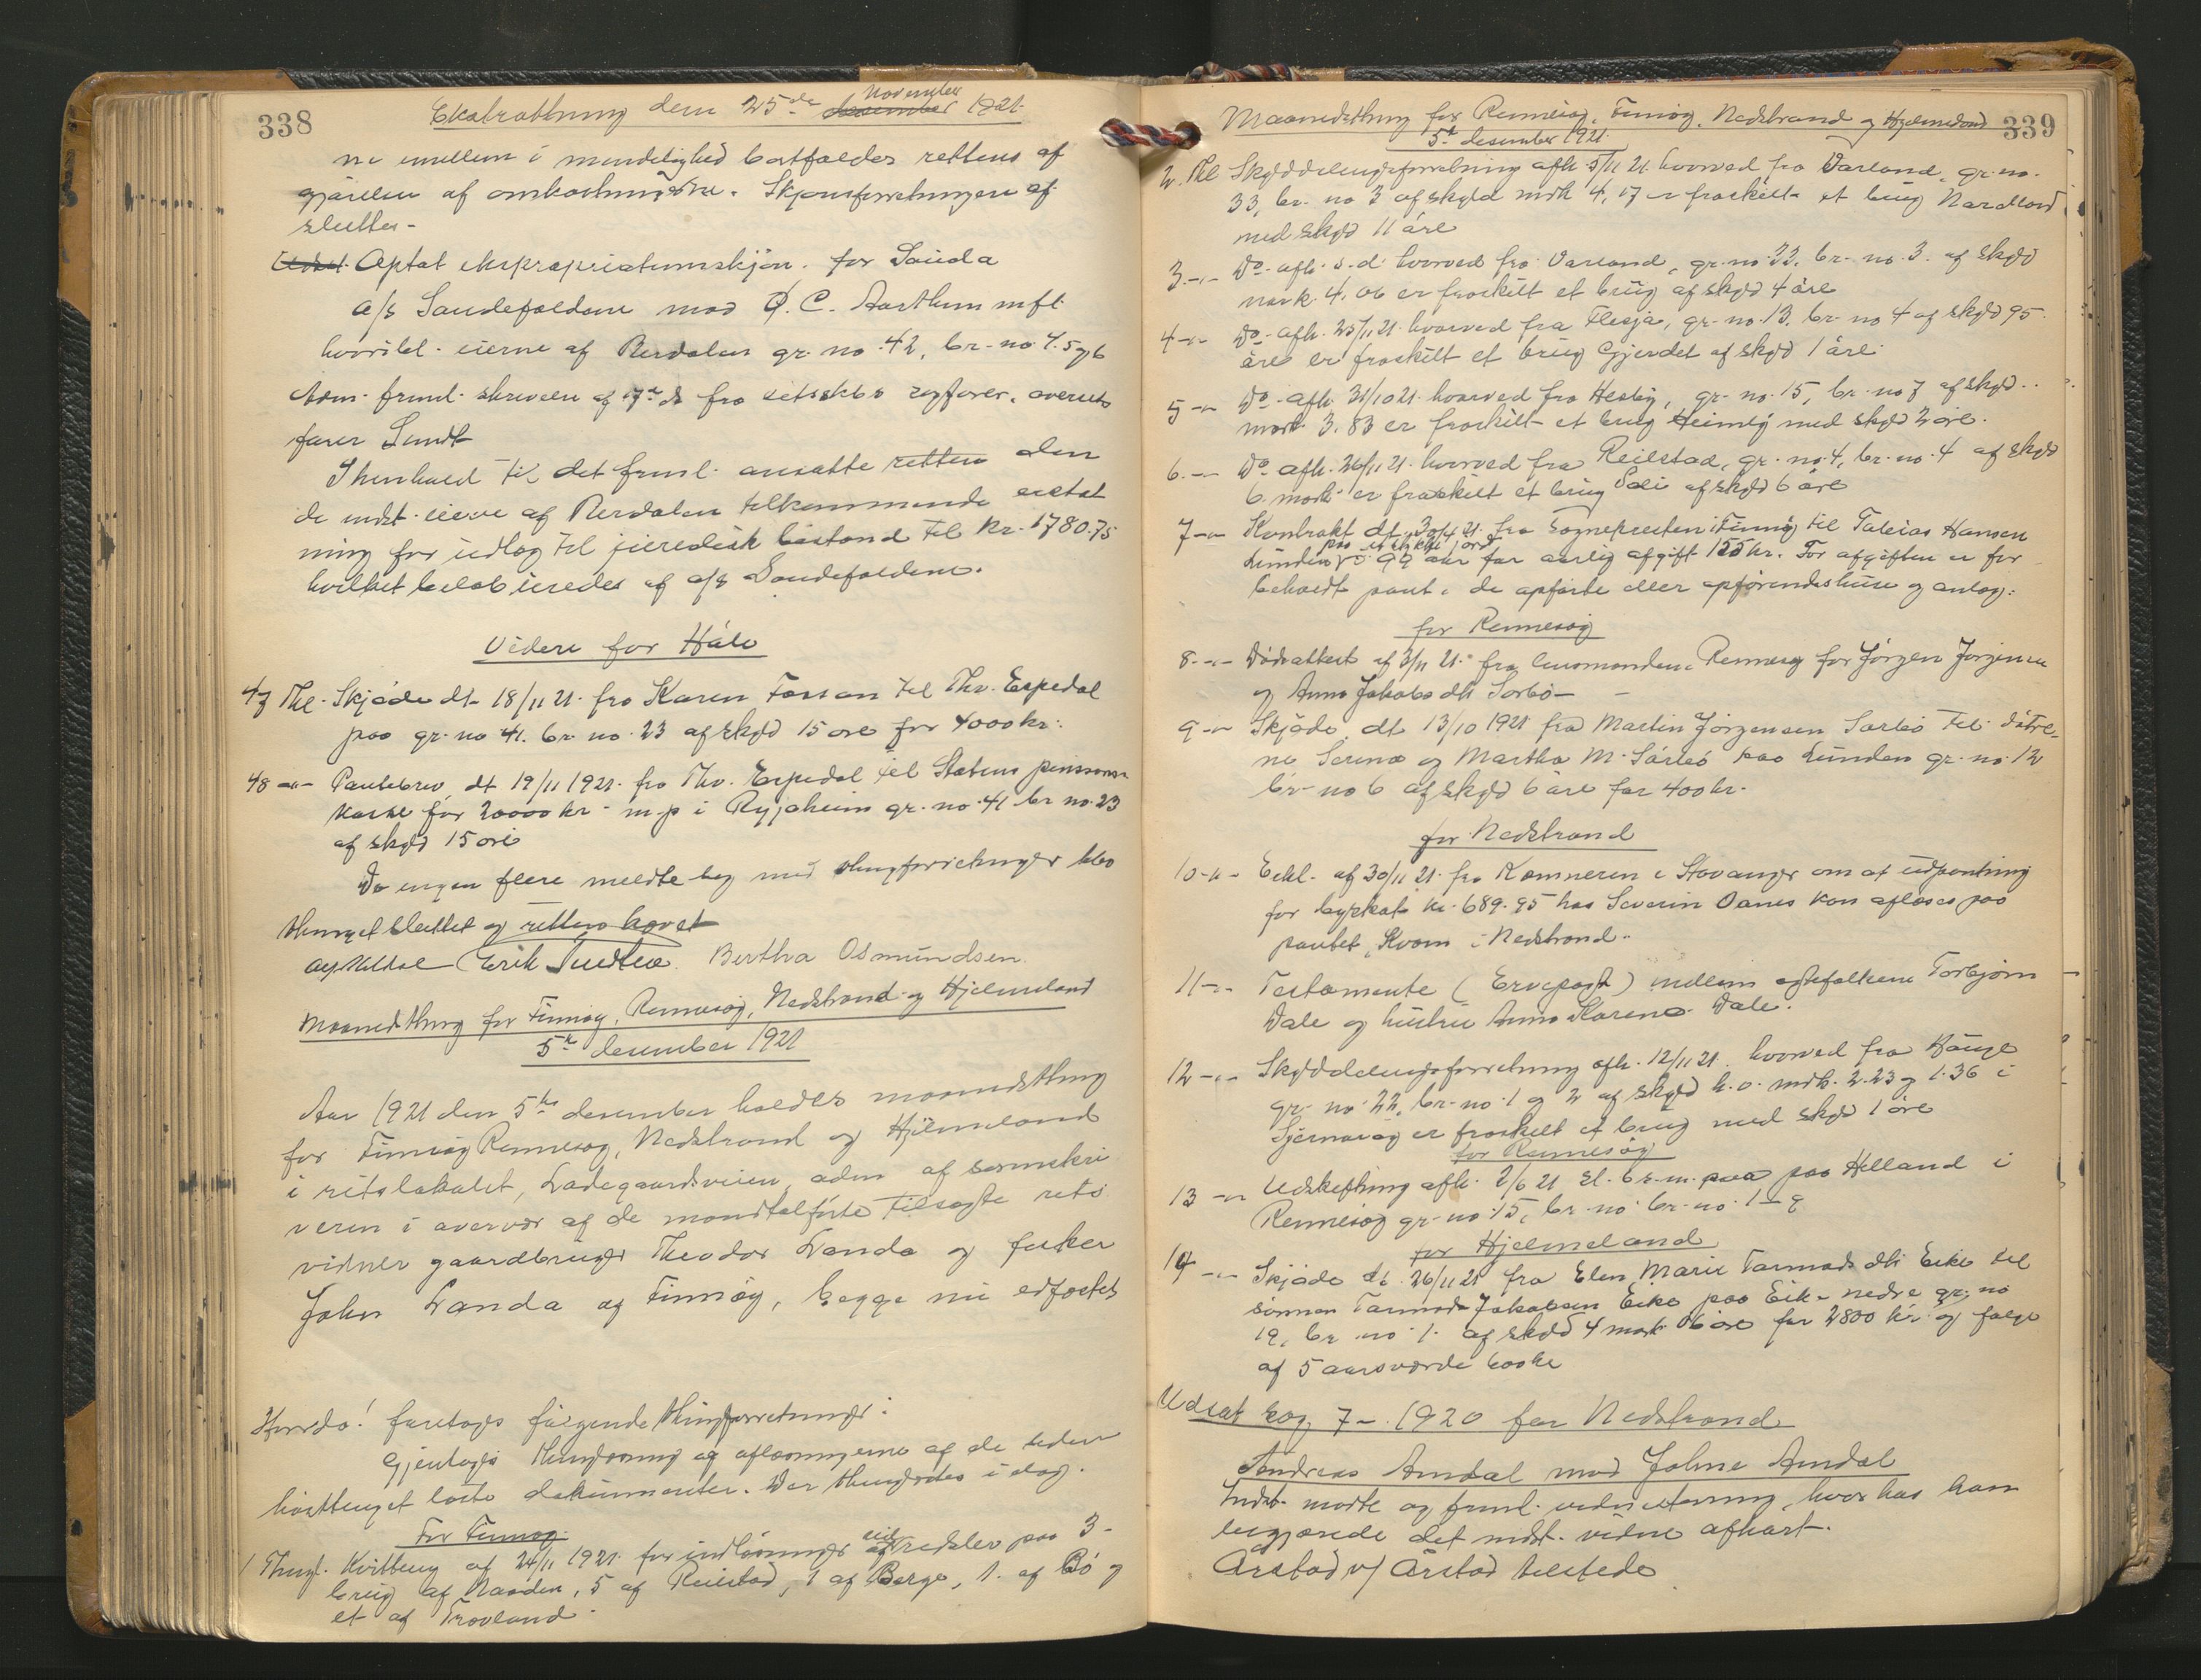 338
Ekstrathing den 25de desember november 1921.
ne imellem i mindelighed bortfalder rettens af
gjørelse af omkostningerne. Skjønsforretningen af
sluttes -
Udsat Optat ekspropriationsskjøn for Sauda
A/S Saudefaldene mod O. C. Aarthun mfl.
hvoribl. eierne af Rerdalen gr. no. 42, br. no 4. 5 og 6
Adm. freml. skrivelse af 7de ds fra
fører Sundt
I henhold til det freml. ansatte retten den
de indst. eiere af Rerdalen tilkommende erstat
ning for udlæg til juridisk bistand til kr. 1780.75
hvilket beløb utredes af A/S Saudefaldene.
Videre for Håle
47 Thl. Skjøde dt. 18/11 21. fra Karen Fossan til Thv. Espedal
paa gr. no 41. br. no. 23 af skyld 15 øre for 4000 kr.
48 -"- Pantebrev dt 19/11 1921. fra Thv. Espedal til Statens pensions-
kasse for 20000 kr. m. p i Ryjaheim gr. no. 41 br no. 23
af skyld 15 øre
Da ingen flere meldte seg med thingforretninger blev
thinget sluttet og retten hævet
Erik Bertha Osmundsen.
Maanedsthing for Finnøy, Rennesøy, Nedstrand og Hjelmeland
5te desember 1921
Aar 1921 den 5te desember holdtes maanedsthing
for Finnøy Rennesøy, Nedstrand og Hjelmeland
i retslokalet, Ladegaardsveien, adm af sorenskri
veren i overvær af de mandtalførte tilsagte rets
vidner gaardbruger Theodor Landa og fisker
John Landa af Finnøy, begge nu edfæstet
Hvorda! foretages følgende thingforretninger:
Gjentages thinglæsning og aflæsningerne af de siden
høsttinget læste dokumenter. Der thinglæstes i dag.
For Finnøy.
1 Thingl. Kvittering af 24/11 1921. for indløsninger paa 3-
brug af Naaden, 5 af Reilstad, 1 af Berge, 1. af Bø og
et af Trovland.
339
Maanedsthing for Rennesøy, Finnøy, Nedstrand og Hjelmeland
5te desember 1921.
2. Thl Skylddelingsforretning afh. 5/11 21. hvorved fra Varland, gr. no.
33, br. no 3 af skyld mrk 4, 17 er fraskilt et brug Nordbord
med skyld 11 øre
3. -"- Do. afh. s. d. hvorved fra Varland, gr. no. 33. br. no. 3. af skyld
mark. 4. 06 er fraskilt et brug af skyld 4 øre
4 -"- Do. afh. 25/11 21. hvorved fra Flesja, gr. no. 13, br. no 4 af skyld 95
øre er fraskilt et brug Gjerdet af skyld 1 øre.
5 -"- Do. afh. 31/10 21. hvorved fra Hesby, gr. no. 15, br. no 7 af skyld
mark. 3.83 er fraskilt et brug Heimly med skyld 2 øre.
6. -"- Do afh. 26/11 21. hvorved fra Reilstad, gr. no. 4, br. no. 4 af skyld
6 mark er fraskilt et brug af skyld 6 øre
7 -"- Kontrakt dt 30/4 21. fra sognepresten i Finnøy til Tobias Hansen
Lunden paa et stykke jord 99 aar for aarlig afgift 155 kr. For afgiften er for
beholdt pant i de opførte eller opførendes huse og anlæg.
for Rennesøy
8. -"- Dødsattest af 3/11 21. fra lensmanden i Rennesøy for Jørgen Jørgensen
og Anna Jakobsdtr Sørbø -
9 -"- Skjøde dt 13/10 1921 fra Martin Jørgensen Sørbø til døtre-
ne Serina og Martha M. Sørbø paa Lunden gr. no. 12
br. no 6 af skyld 6 øre for 400 kr.
for Nedstrand
10 -"- Erkl. af 30/11 21. fra Kæmneren i Stavanger om at udpantning
for byskat kr. 689.95 hos Severin Oanes kan aflæses paa
pantet Kvam i Nedstrand.
11 -"- Testamente (Ervepagt) mellem egtefolkene Torbjørn
Dale og hustru Anna Karena Dale.
12 -"- Skylddelingsforretning afh. 12/11 21. hvorved fra Hauge
gr. no. 22, br. no. 1 og 2 af skyld h. o. mrk. 2.23 og 1.36 i
Sjernarøy er fraskilt et brug med skyld 1 øre
for Rennesøy
13 -"- Udskiftning afh. 2/6 21 sl. paa Helland i
Rennesøy gr. no. 15, br. no. br. no. 1 - 9
for Hjelmeland
14 -"- Skjøde dt. 26/11 21 fra Elen Marie Tormodsdtr Eike til
sønnen Tormod Jakobsen Eike paa Eike nedre gr. no
19, br no. 1. af skyld 4 mark 06 øre for 2800 kr. og følge
af 5 aarsværdi 600 kr
Udsat sag 7 - 1920 for Nedstrand
Andreas Amdal mod Johne Amdal
Indst. møtte og freml. vidnestevning, hvor hos han
begjærede det indst. vidne afhørt.
Årstad v/ Årstad tilstede